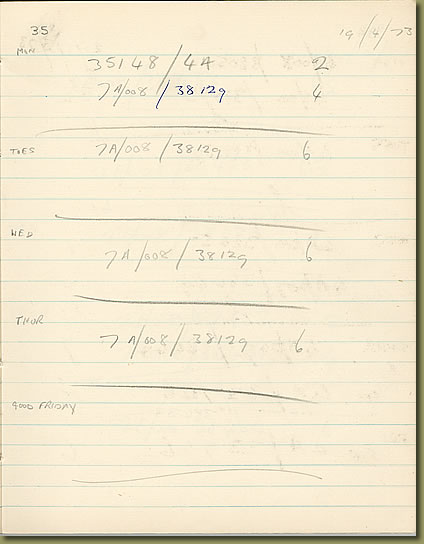 35 19/4/73
MON 35148/4A 2
7A/008/38129 4
TUES 7A/008/38129 6
WED 7A/008/38129 6
THUR 7A/008/38129 6
GOOD FRIDAY